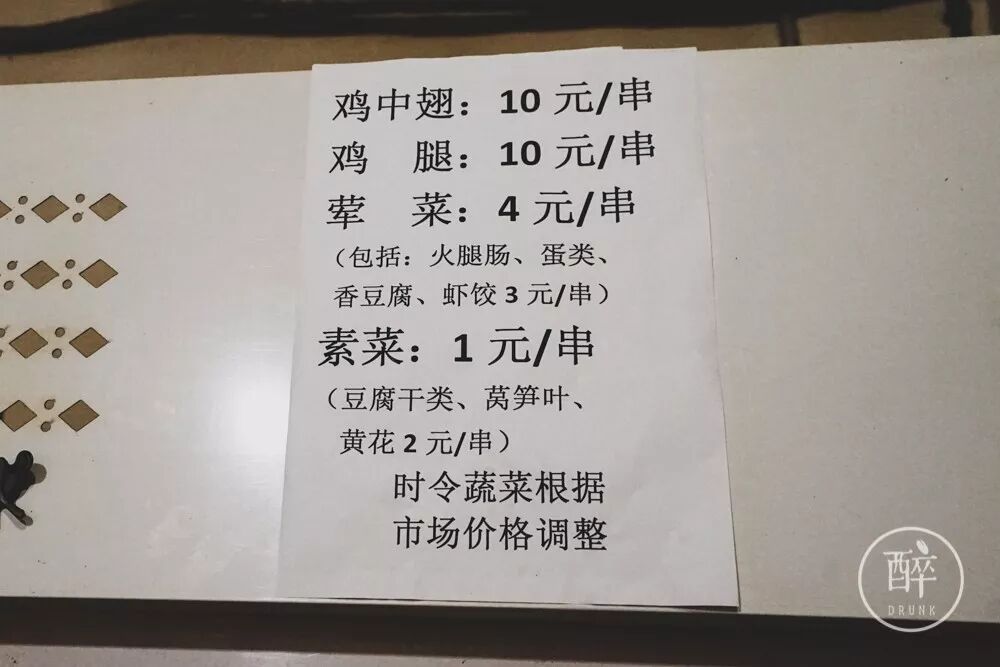 鸡中翅：10 元/串
鸡　腿：10 元/串
荤　菜：4 元/串
（包括：火腿肠、蛋类、
香豆腐、虾饺 3 元/串）
素菜：1 元/串
（豆腐干类、莴笋叶、
黄花 2 元/串）
时令蔬菜根据
市场价格调整
醉
DRUNK